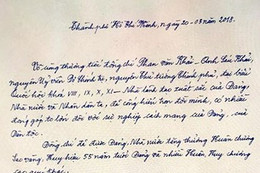 Thành phố Hồ Chí Minh, ngày 20-03 năm 2018.
Vô cùng thương tiếc đồng chí Phan Văn Khải - Anh Sáu Khải,
nguyên Uỷ viên Bộ Chính trị, nguyên Thủ tướng Chính phủ, đại biểu
Quốc hội khoá VIII, IX, X, XI - Nhà lãnh đạo xuất sắc của Đảng,
Nhà nước và Nhân dân ta, đã cống hiến trọn đời mình, có nhiều
đóng góp to lớn đối với sự nghiệp cách mạng của Đảng, của
Dân tộc.
Đồng chí đã được Đảng, Nhà nước tặng thưởng Huân chương
Sao vàng, Huy hiệu 55 năm tuổi Đảng và nhiều Huân, Huy chương
cao quý khác.